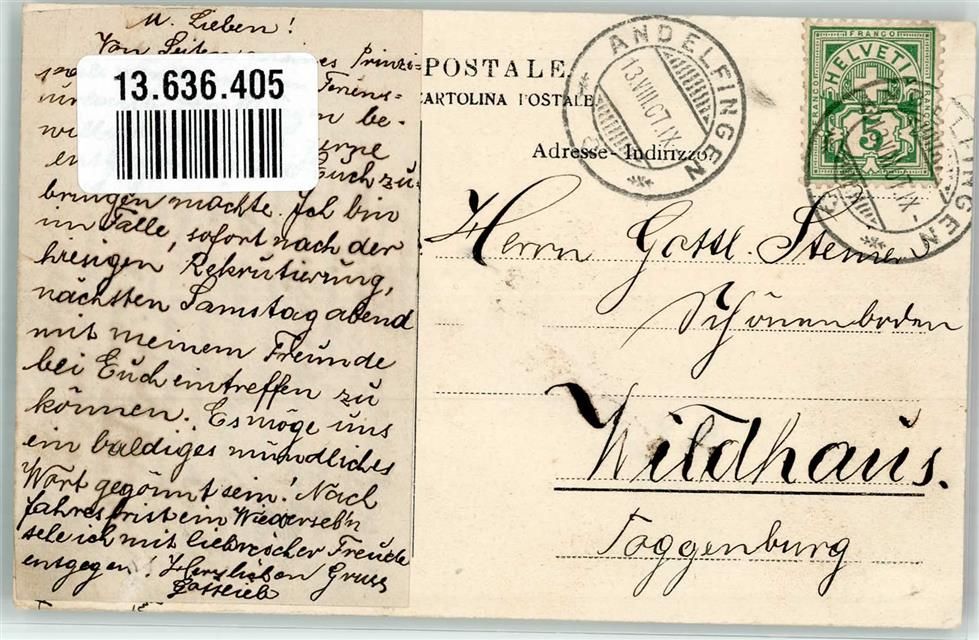 M. Lieben!
Von Seiten Prinzi-
Feriens-
be-
Euch zu-
bringen möchte. Ich bin
im Falle, sofort nach der
hiesigen Rekrutierung,
nächsten Samstag abend
mit meinem Freunde
bei Euch eintreffen zu
können. Es möge uns
ein baldiges mündliches
Wort gegönnt sein! Nach
Jahresfrist ein Wiederseh'n
sehe ich mit liebreicher Freude
entgegen! Herzlichen Gruss
Gottlieb
13.636.405
POSTALE.
CARTOLINA POSTALE
Adresse - Indirizzo:
ANDELFINGEN
13.VIII.07.IX
FRANCO
HELVETIA
FRANCO
FRANCO
5
LFINGEN
IX-
Herrn Gottl. Steiner
Schönenboden
Wildhaus.
Toggenburg